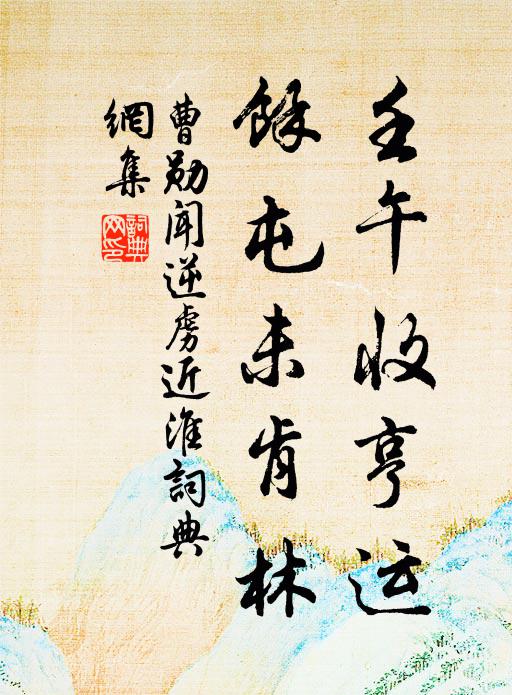 壬午收亨运
馀屯未肯林
曹勋闻逆虏近淮詞典
網集
詞典网印